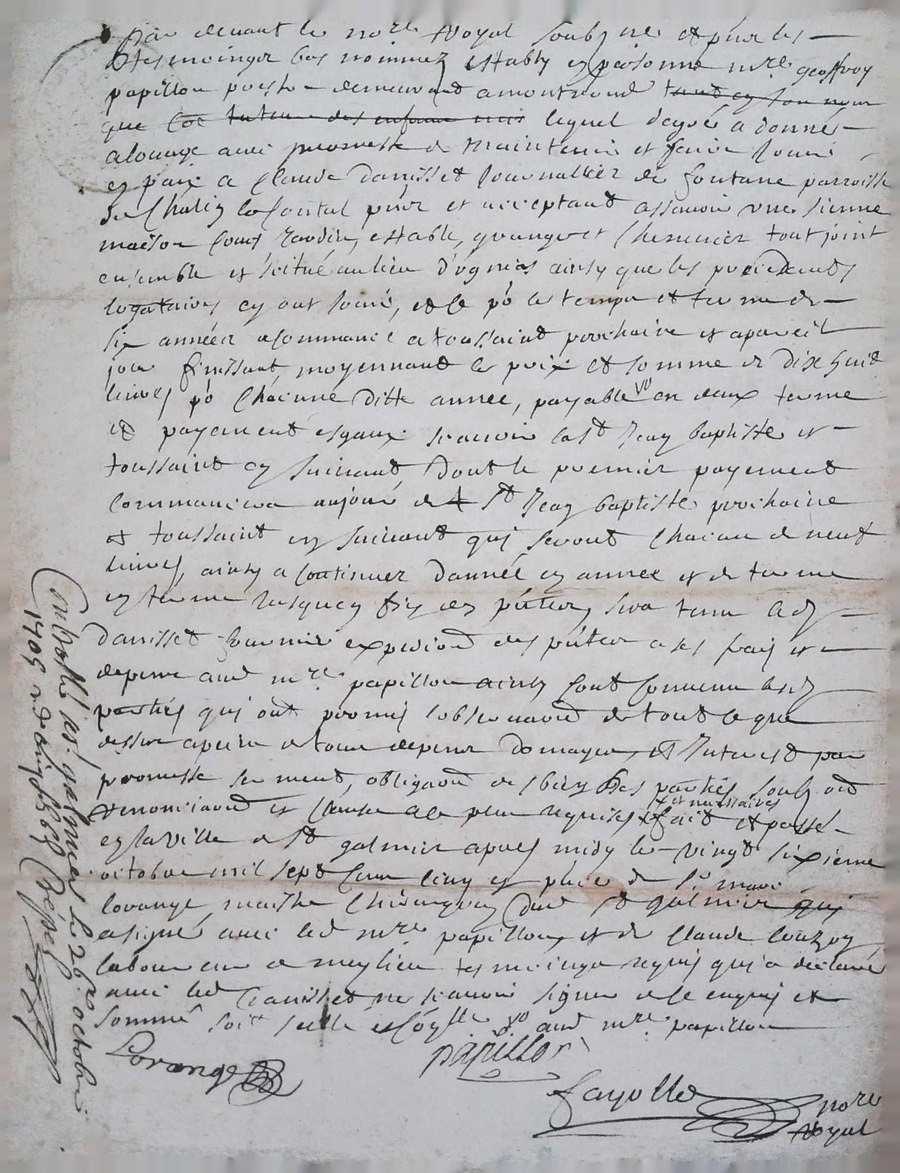 Par devant le nore Royal soubzne et pnt les
tesmoingz bas nommez estably en personne mre geoffroy
papillon demeurand a montrond tand en son nom
que come tuteur des enfans lequel de gre a donné
a louage avec promesse de maintenir et faire jouir
en paix a Claude danisset journallier de fontane parroisse
de Chalin le Contal pnt et acceptand assavoir une sienne
maison cour jardin, estable, grange et Chenevier tout joint
ensemble et scitué au lieu d'ognias ainsy que les precedends
logataires en ont joui, et ce po le temps et terme de
six années a commance a toussaint prochaine et a pareil
jour finissant moyennand le prix et somme de dix huit
livres po Chacune ditte année, payable en deux terme
et payement esgaux scavoir la st Jean baptiste et
toussaint en suivand dont le premier payement
commancera au jour de st Jean baptiste prochaine
et toussaint en suivant qui seront Chacun de neuf
livres, ainsy a continuer d'annee en annee et de terme
en terme jusques fin des pntes, sera tenu led
danisset fournir expedion des pntes a ses frais et
depens aud mre papillon ainsy sont convenu lesd
parties qui ont promis l'observaon de tout ce que
dessus a peine de tous depens domages et Interest par
promesse serment, obligaon de biens des parties soubz on
renonciaon et clause a ce plus requises et necessaires fait et passé
en la ville de St galmier apres midy le vingt sixieme
octobre mil sept Cent Cinq en pnce de sr marc
Lorange maistre Chirurgien dud st galmier qui
a signé avec led mre papillon, et de Claude Couzon
laboureur de meylieu tesmoingz requis qui a declaré
avec led danisset ne scavoir signer de ce enquis et
sommé soit scellé aud mre papillon
Lorange
papillon
fayolle nore
Royal
Controllé a st galmier le 26e octobre
1705